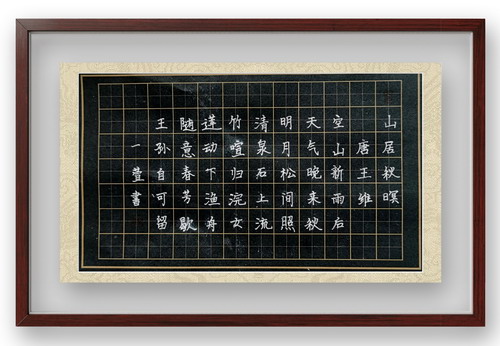 山居秋暝
唐王维
空山新雨后
天气晚来秋
明月松间照
清泉石上流
竹喧归浣女
莲动下渔舟
随意春芳歇
王孙自可留
一萱書